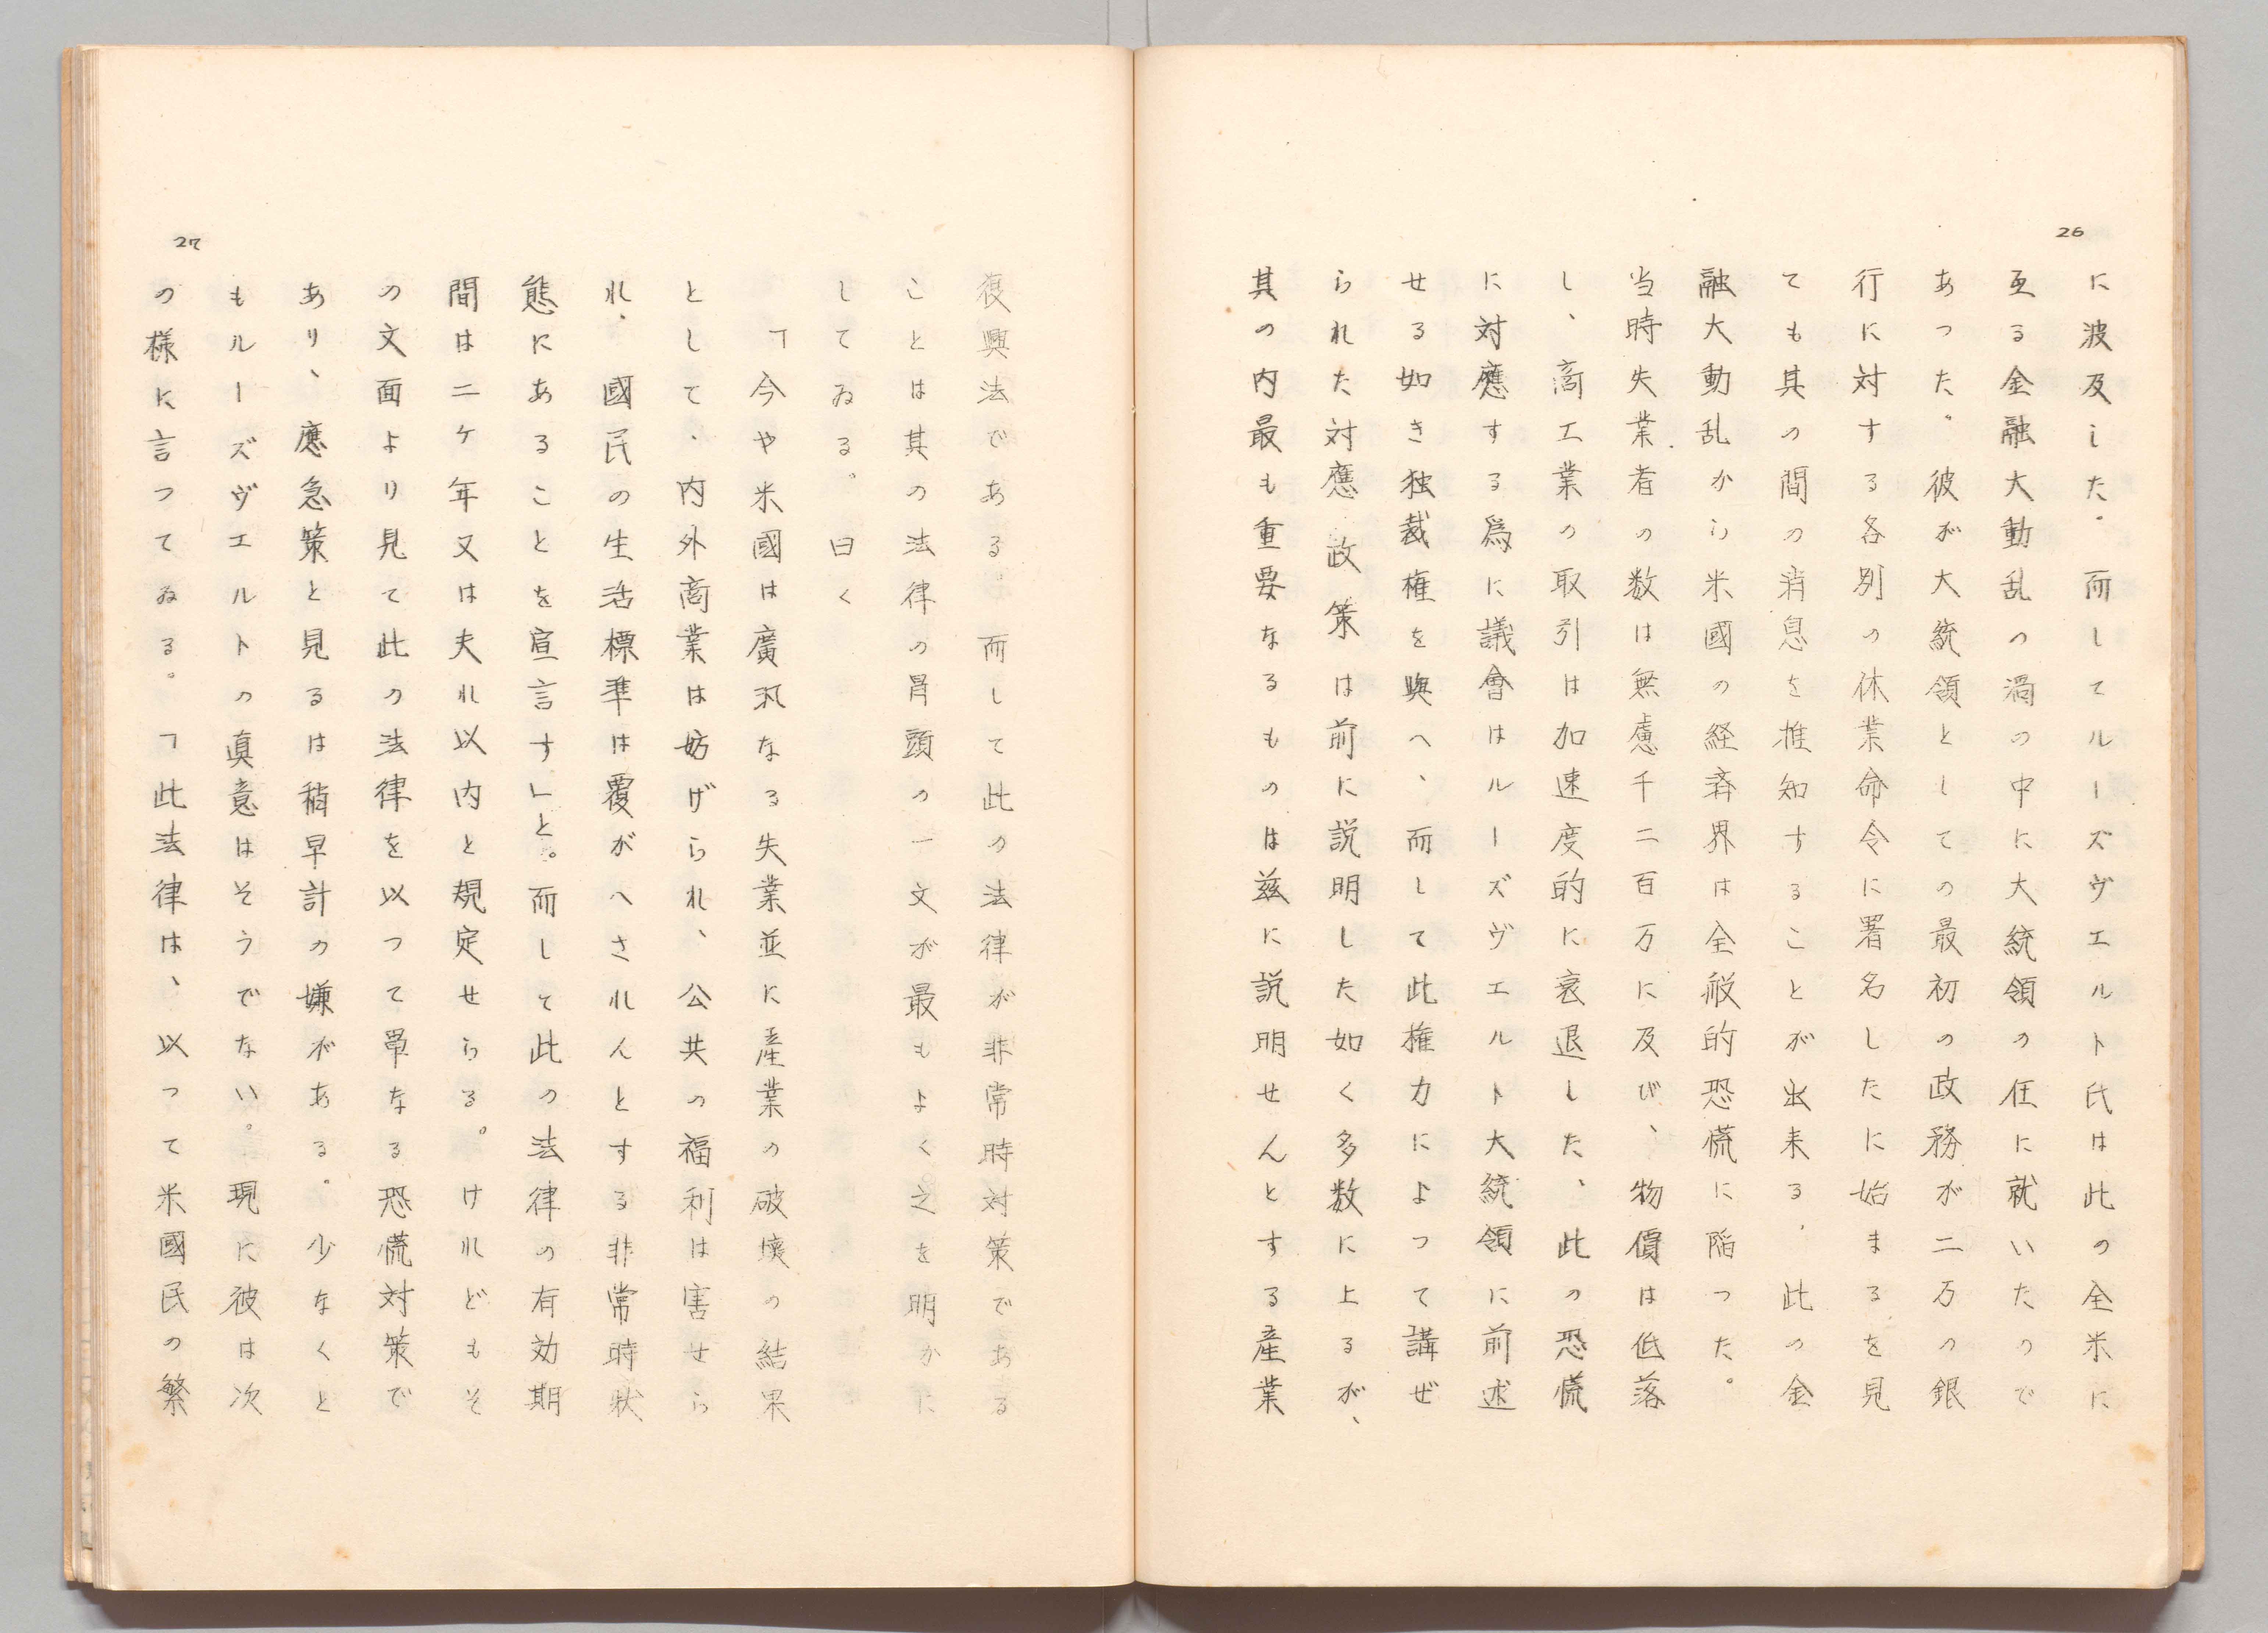 26
に波及した。而してルーズヴエルト氏は此の全米に
亙る金融大動乱の渦の中に大統領の任に就いたので
あった。彼が大統領としての最初の政務が二万の銀
行に対する各別の休業命令に署名したに始まるを見
ても其の間の消息を推知することが出来る、此の金
融大動乱から米國の経済界は全般的恐慌に陥った。
当時失業者の数は無慮千二百万に及び、物價は低落
し、商工業の取引は加速度的に衰退した、此の恐慌
に対應する爲に議會はルーズヴエルト大統領に前述
せる如き独裁権を興へ、而して此権力によって講ぜ
られた対應政策は前に説明した如く多数に上るが、
其の内最も重要なるものは茲に説明せんとする産業
27
復興法である。而して此の法律が非常時対策である
ことは其の法律の冐頭の一文が最もよく之を明かに
してゐる。曰く
「今や米國は廣汎なる失業並に産業の破壊の結果
として、内外商業は妨げられ、公共の福利は害せら
れ、國民の生活標準は覆がへされんとする非常時狀
態にあることを宣言す」と。而して此の法律の有効期
間は二ケ年又は夫れ以内と規定せらる。けれどもそ
の文面より見て此の法律を以つて單なる恐慌対策で
あり、應急策と見るは稍早計の嫌がある。少なくと
もルーズヴエルトの真意はそうでない。現に彼は次
の様に言つてゐる。「此法律は、以つて米國民の繁